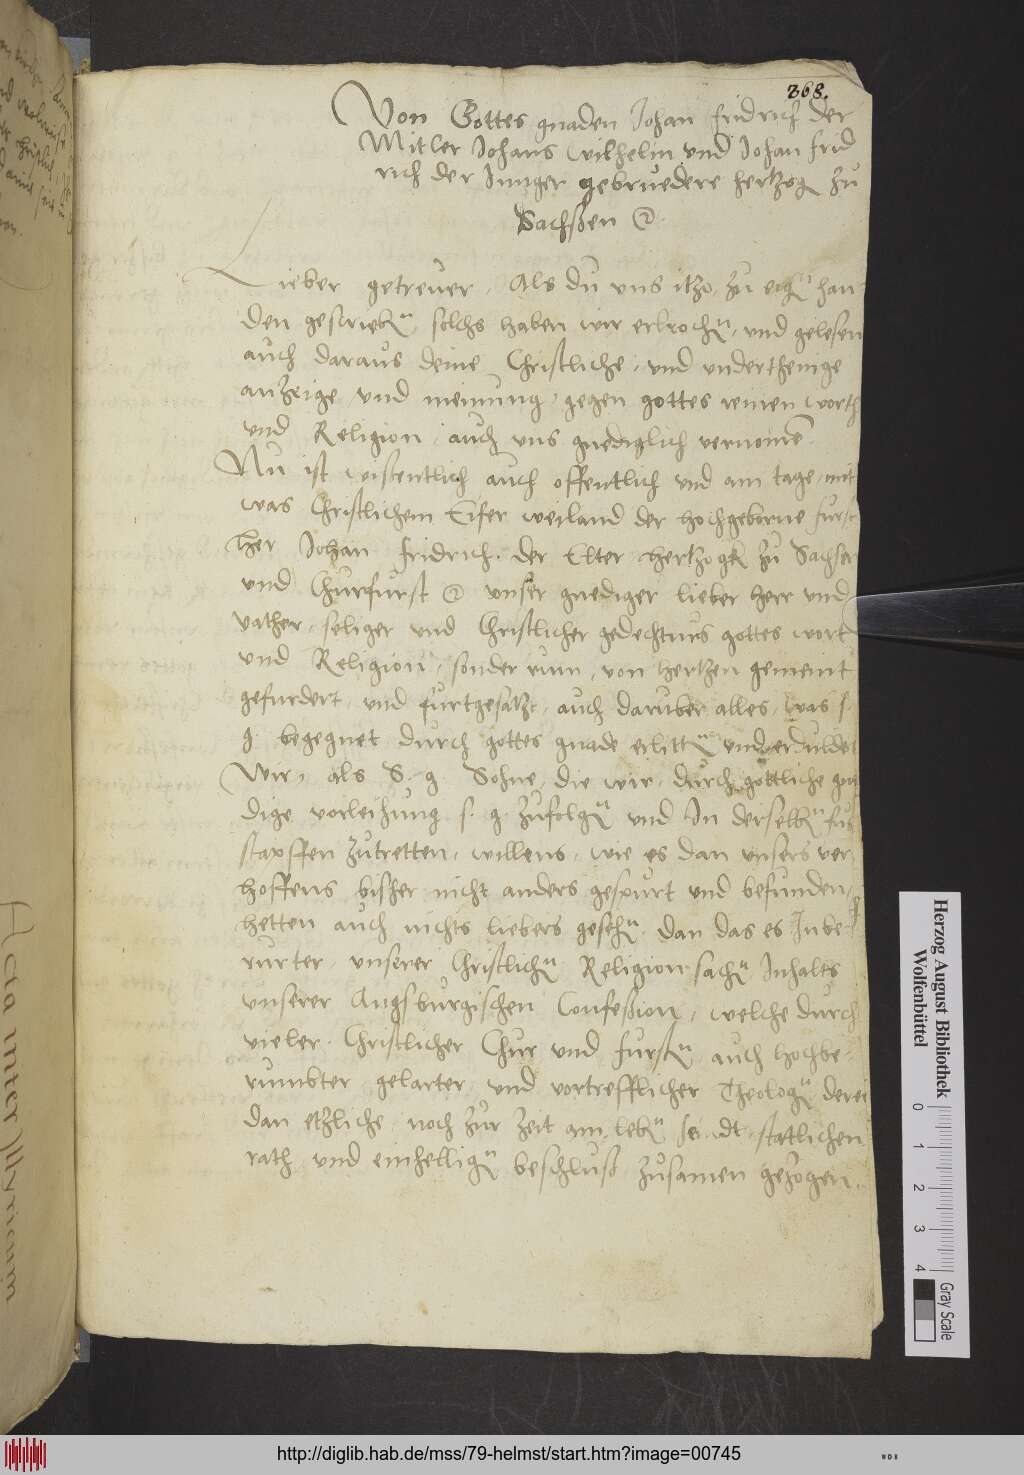 368.
Von Gottes gnaden Johan fridrich der
Mitler Johans Wilhelm und Johan frid
rich der Junger gebruedere hertzog zu
Sachssen
Lieber getreuer, Als du uns itzo zu eign han
den geschriebn solchs haben wir erbrochn, und gelesen
auch daraus deine Christliche, und underthenige
anzeige und meinung, gegen gottes reinen worth
und Religion, auch uns gnediglich vernomen.
Nu ist wissentlich auch offentlich und am tage, mit
was Christlichem Eifer weiland der hochgeborne furst
Her Johan fridrich der Elter hertzogk zu Sachsen
und Churfurst unser gnediger lieber herr und
vather, seliger und Christlicher gedechtnus gottes wort
und Religion, sonder rum, von hertzen gemeint
gefurdert, und furtgesatzt, auch daruber alles, was s.
g. begegnet durch gottes gnade erlittn und erduldet
Wir, als S. g. Sohne, die wir, durch gottliche gne
dige vorleihung s. g. zufolgn und In derselbn fus
stapffen zutretten, willens, wie es dan unsers ver
hoffens bisher nicht anders gespurt und befunden,
hetten auch nichts liebers gesehn dan das es In be
rurter, unserer Christlichn Religion sachn Inhalts
unserer Augsburgischen Confession, welche durch
vieler Christlicher Chur und furstn auch hochbe
rumbter gelarter und vortrefflicher Theologn deren
dan etzliche, noch zur zeit am lebn seindt statlichen
rath und einhellign beschluss zusamen gezogen.
Acta inter Illyricum
Herzog August Bibliothek
Wolfenbüttel
0 1 2 3 4
Gray Scale
http://diglib.hab.de/mss/79-helmst/start.htm?image=00745